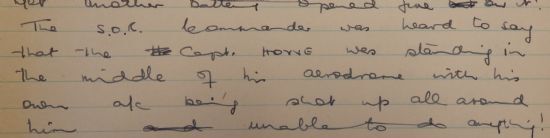 Yet another battery opened fire on it.
The S.O.R. Commander was heard to say
that the Capt. HOWE was standing in
the middle of his aerodrome with his
own a/c being shot up all around
him and unable to do anything!